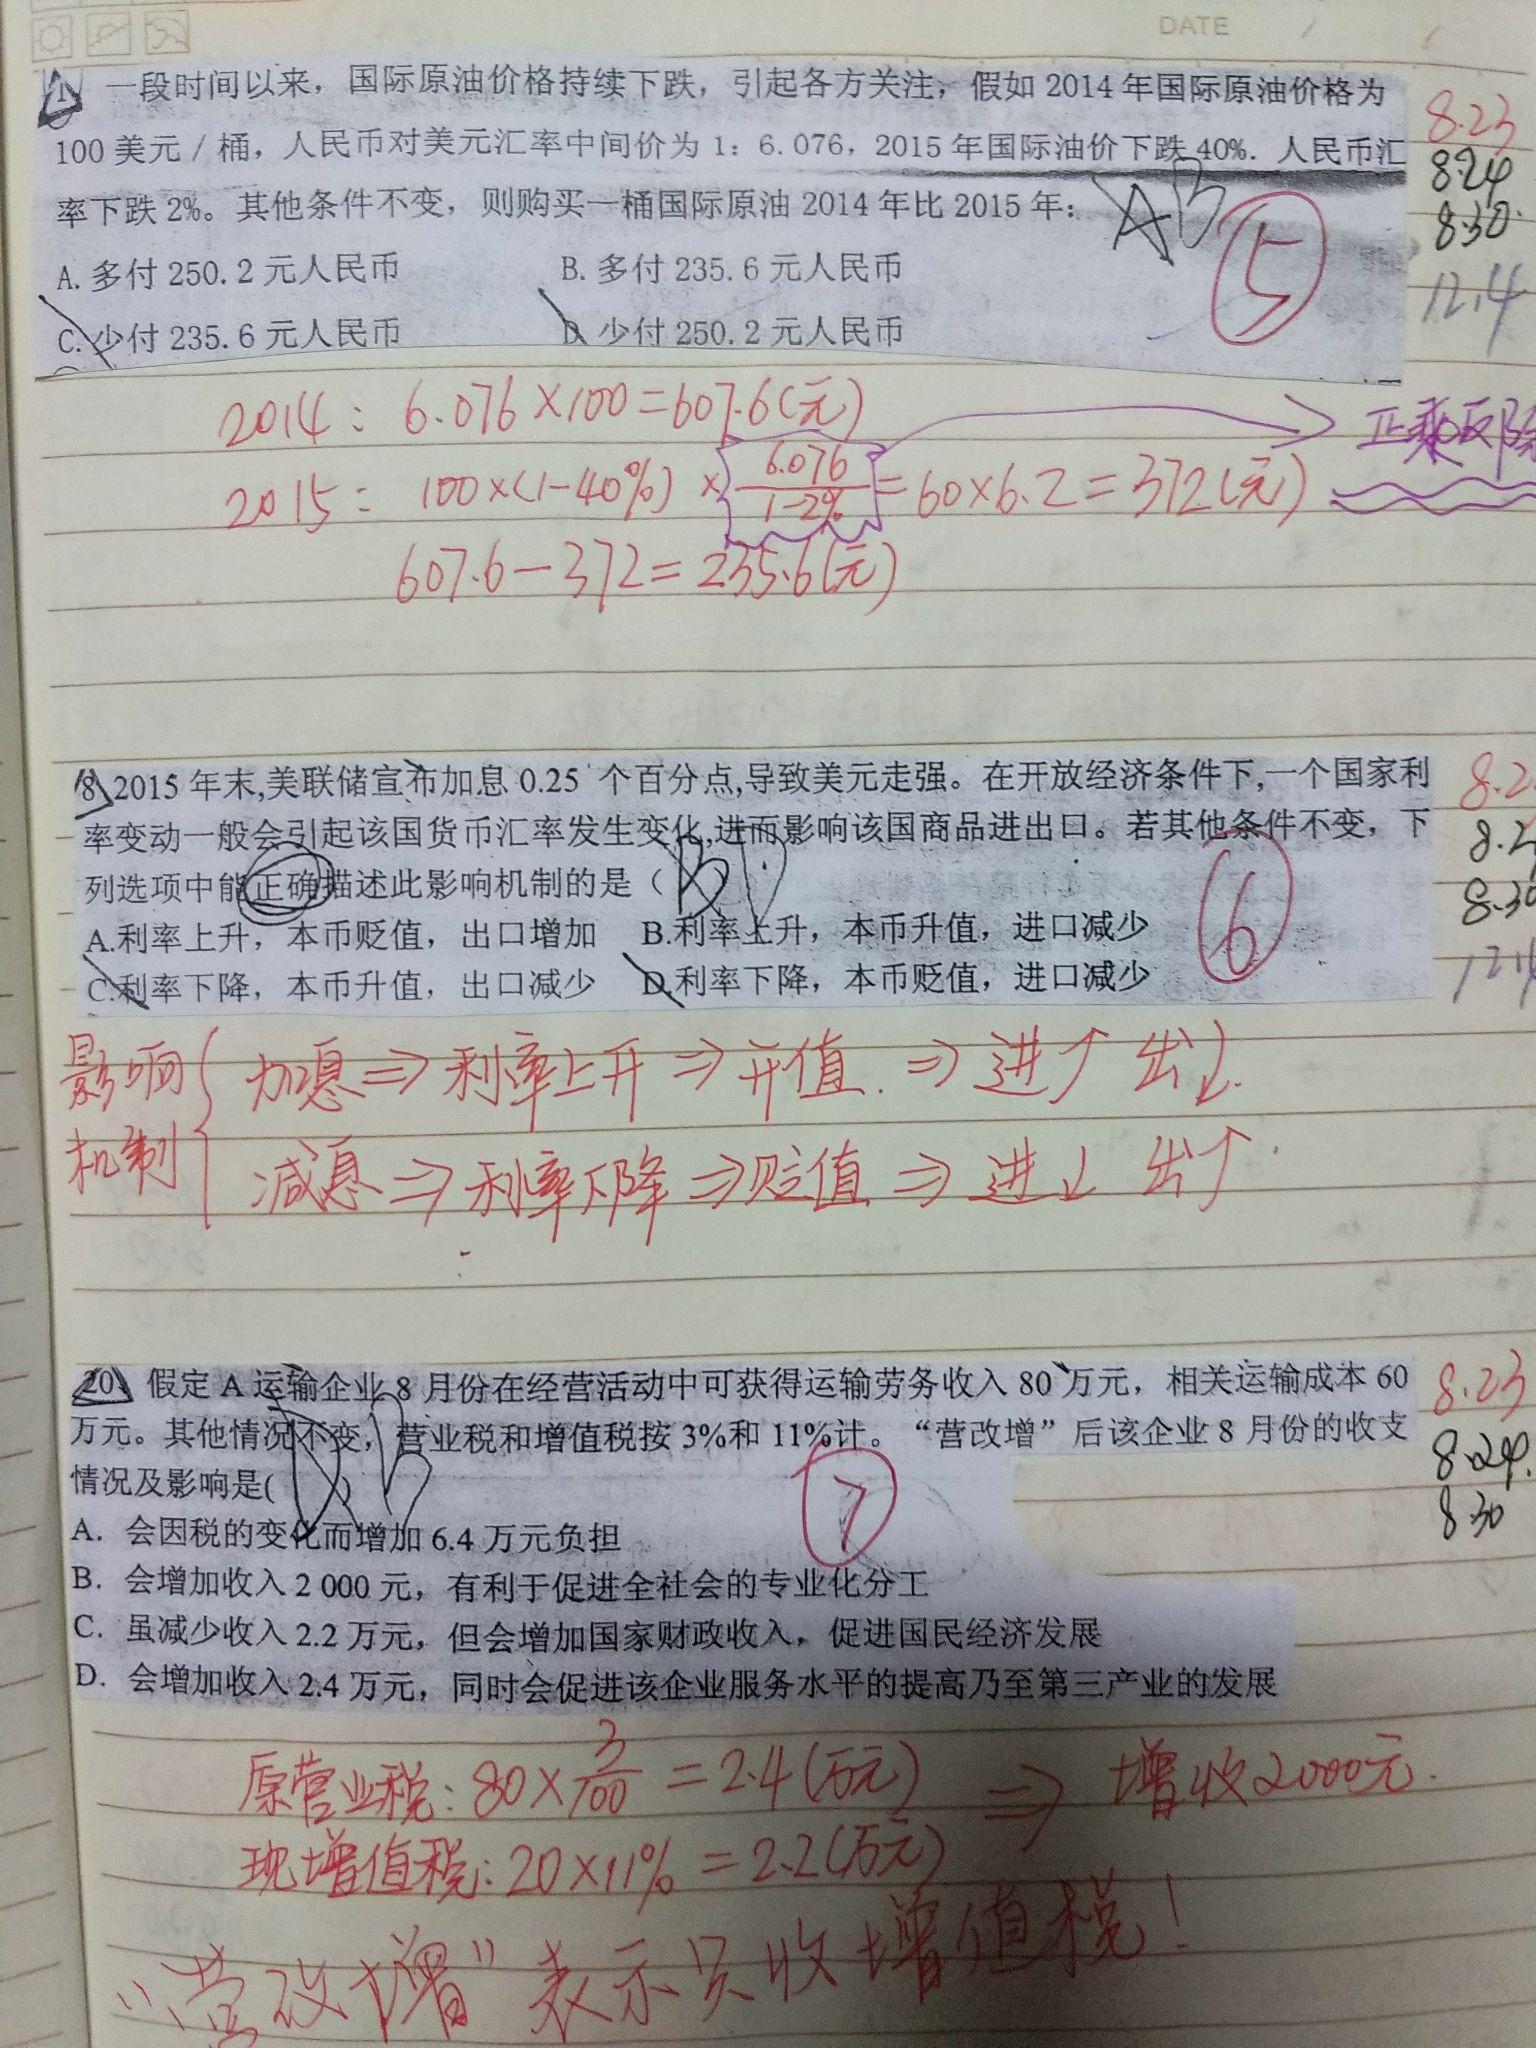 DATE
一段时间以来，国际原油价格持续下跌，引起各方关注，假如 2014 年国际原油价格为
100 美元 / 桶，人民币对美元汇率中间价为 1: 6.076，2015 年国际油价下跌 40%. 人民币汇
率下跌 2%。其他条件不变，则购买一桶国际原油 2014 年比 2015 年：
A. 多付 250.2 元人民币 B. 多付 235.6 元人民币
C. 少付 235.6 元人民币 D. 少付 250.2 元人民币
A B
⑤
8.23
8.24
8.30
12.4
2014: 6.076×100=607.6(元)
2015: 100×(1-40%)×6.076/1-2%=60×6.2=372(元)
正乘反除
607.6-372=235.6(元)
8 2015 年末,美联储宣布加息 0.25 个百分点,导致美元走强。在开放经济条件下,一个国家利
率变动一般会引起该国货币汇率发生变化,进而影响该国商品进出口。若其他条件不变，下
列选项中能正确描述此影响机制的是（
A.利率上升，本币贬值，出口增加 B.利率上升，本币升值，进口减少
C.利率下降，本币升值，出口减少 D.利率下降，本币贬值，进口减少
⑥
8.30
影响
机制
加息⇒利率上升⇒升值.⇒进↑ 出↓.
减息⇒利率下降⇒贬值⇒进↓ 出↑
20 假定 A 运输企业 8 月份在经营活动中可获得运输劳务收入 80 万元，相关运输成本 60
万元。其他情况不变，营业税和增值税按 3%和 11%计。“营改增”后该企业 8 月份的收支
情况及影响是(
A. 会因税的变化而增加 6.4 万元负担
B. 会增加收入 2 000 元，有利于促进全社会的专业化分工
C. 虽减少收入 2.2 万元，但会增加国家财政收入，促进国民经济发展
D. 会增加收入 2.4 万元，同时会促进该企业服务水平的提高乃至第三产业的发展
⑦
8.23
8.24.
8.30
原营业税:80×3/100=2.4(万元) ⇒ 增收2000元.
现增值税:20×11%=2.2(万元)
“营改增”表示只收增值税!